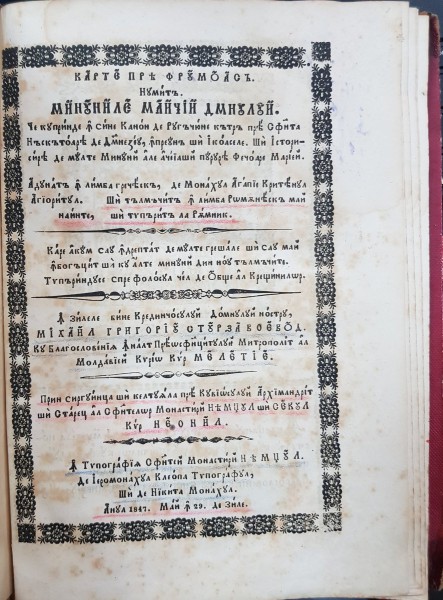 КАРТЕ ПРѢ ФРꙊМОАСЪ.
НꙊМИТЪ.
МИНꙊНИЛЕ МАЙЧІЙ ДМНꙊЛꙊЙ.
Че кꙋпринде ꙟ сине Канон де Рꙋгъчюне кътръ прѣ Сфѫнта
Нъскътоаре де Дмнезеꙋ, ꙟпреꙋнъ ши Ікоаселе. Ши Істори-
сире де мꙋлте Минꙋни але ачіїаши пꙋрꙋре Фечоаре Маріей.
Адꙋнатъ ꙟ лимба гречѣскъ, де Монахꙋл Агапіе Критѣнꙋл
Агіоритꙋл. Ши тълмъчитъ ꙟ лимба Рꙋмѫнѣскъ май
наинте, ши тѵпъритъ ла Рѫмник.
Каре акꙋм саꙋ ꙟдрептат де мꙋлте грешале ши саꙋ май
ꙟбогъцит ши кꙋ алте минꙋни дин ноꙋ тълмъчите.
Тѵпъриндꙋсе спре фолосꙋл чел де Обще ал Крещинилѡр.
Ꙟ Зилеле бине Крединчосꙋлꙋй Домнꙋлꙋй нострꙋ,
МІХАИЛ ГРИГОРІꙊ СТꙊРЗА ВОЕВОД.
Кꙋ Благословѣніа ꙟналт Прѣѡсфинцитꙋлꙋй Митрополит ал
Молдавіей Кѵріѡ Кѵр МЕЛЕТІЕ.
Прин сиргꙋинца ши келтꙋала прѣ Кꙋвіѡсꙋлꙋй Архімандрит
ши Старец ал Сфинтелѡр Монастири НѢМЦꙊЛ ши СЕКꙊЛ
Кѵр НЕОНИЛ.
Ꙟ Тѵпографіа Сфинтей Монастирй НѢМЦꙊЛ.
Де Іеромонахꙋл Клеопа Тѵпографꙋл,
Ши де Нікита Монахꙋл.
Анꙋл 1847. Май ꙟ 29. де Зиле.